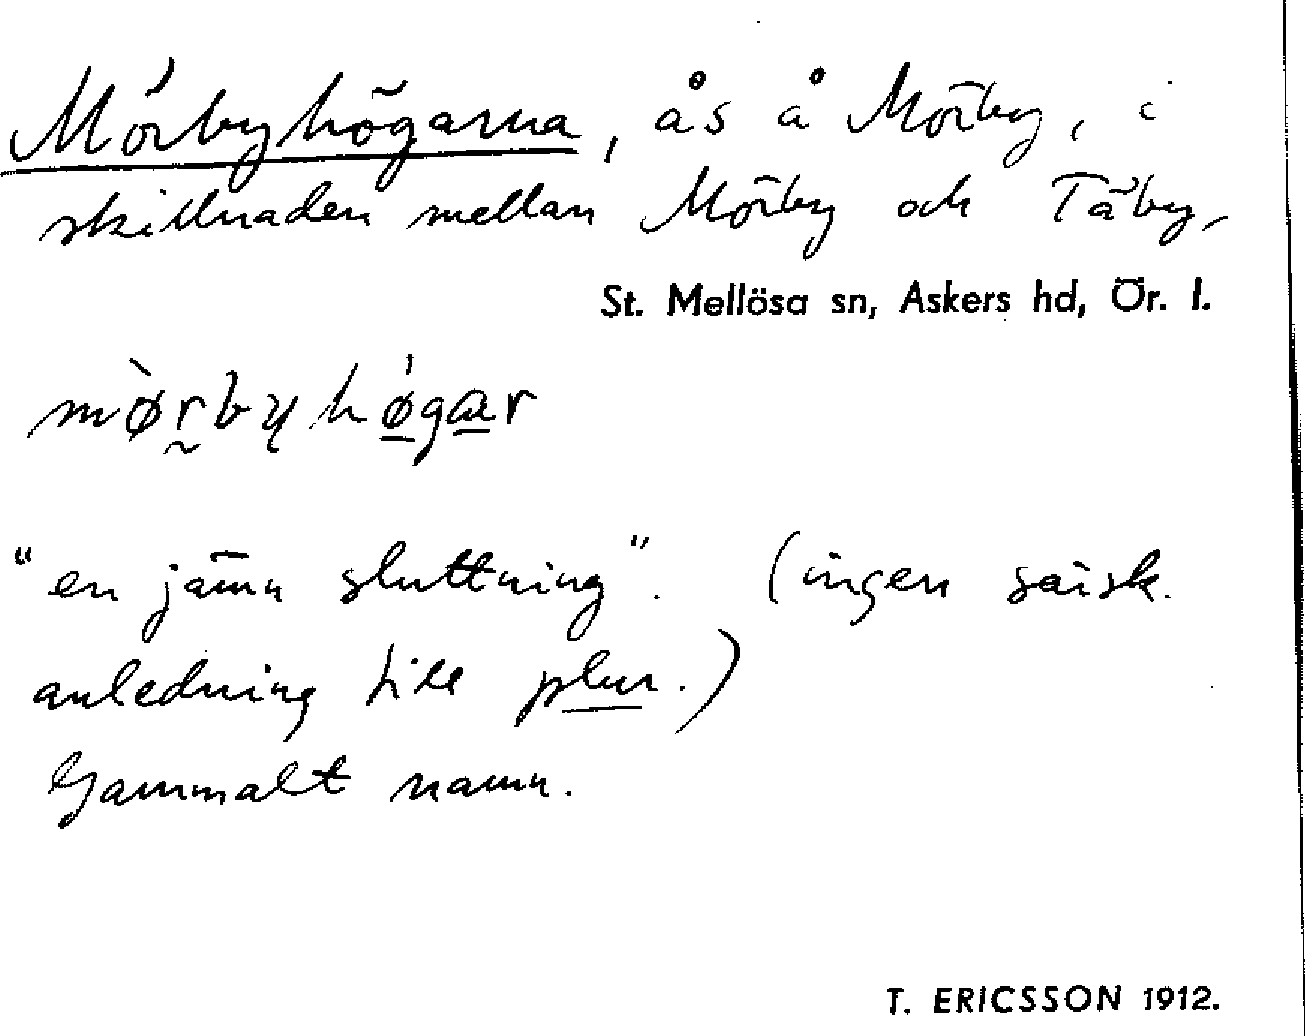 Mörbyhögarna, ås å Mörby, i
skillnaden mellan Mörby och Täby,
St. Mellösa sn, Askers hd, Ör. l.
mø̀r̰byhǿ̲ga̲r
"en jämn sluttning". (ingen särsk.
anledning till plur.)
Gammalt namn.
T. ERICSSON 1912.